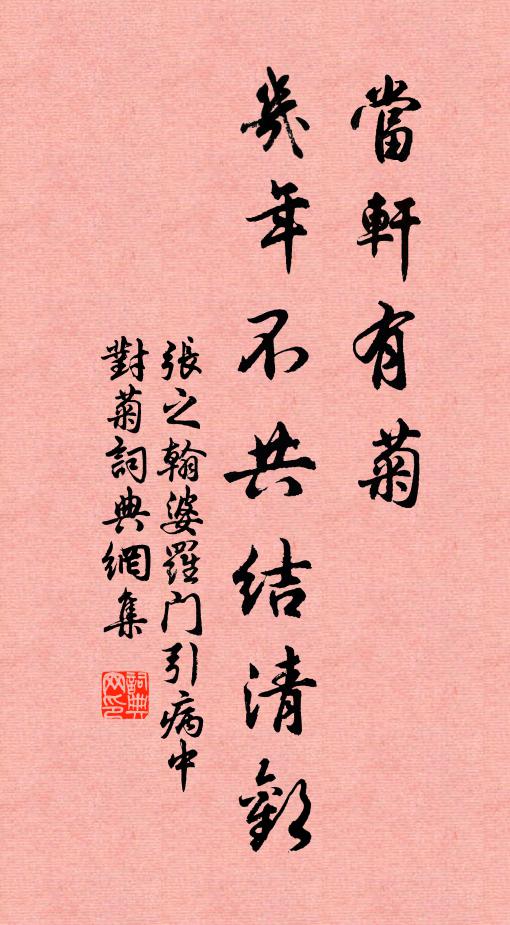 當軒有菊
幾年不共結清歡
張之翰婆羅门引病中
對菊詞典網集
詞典
网印